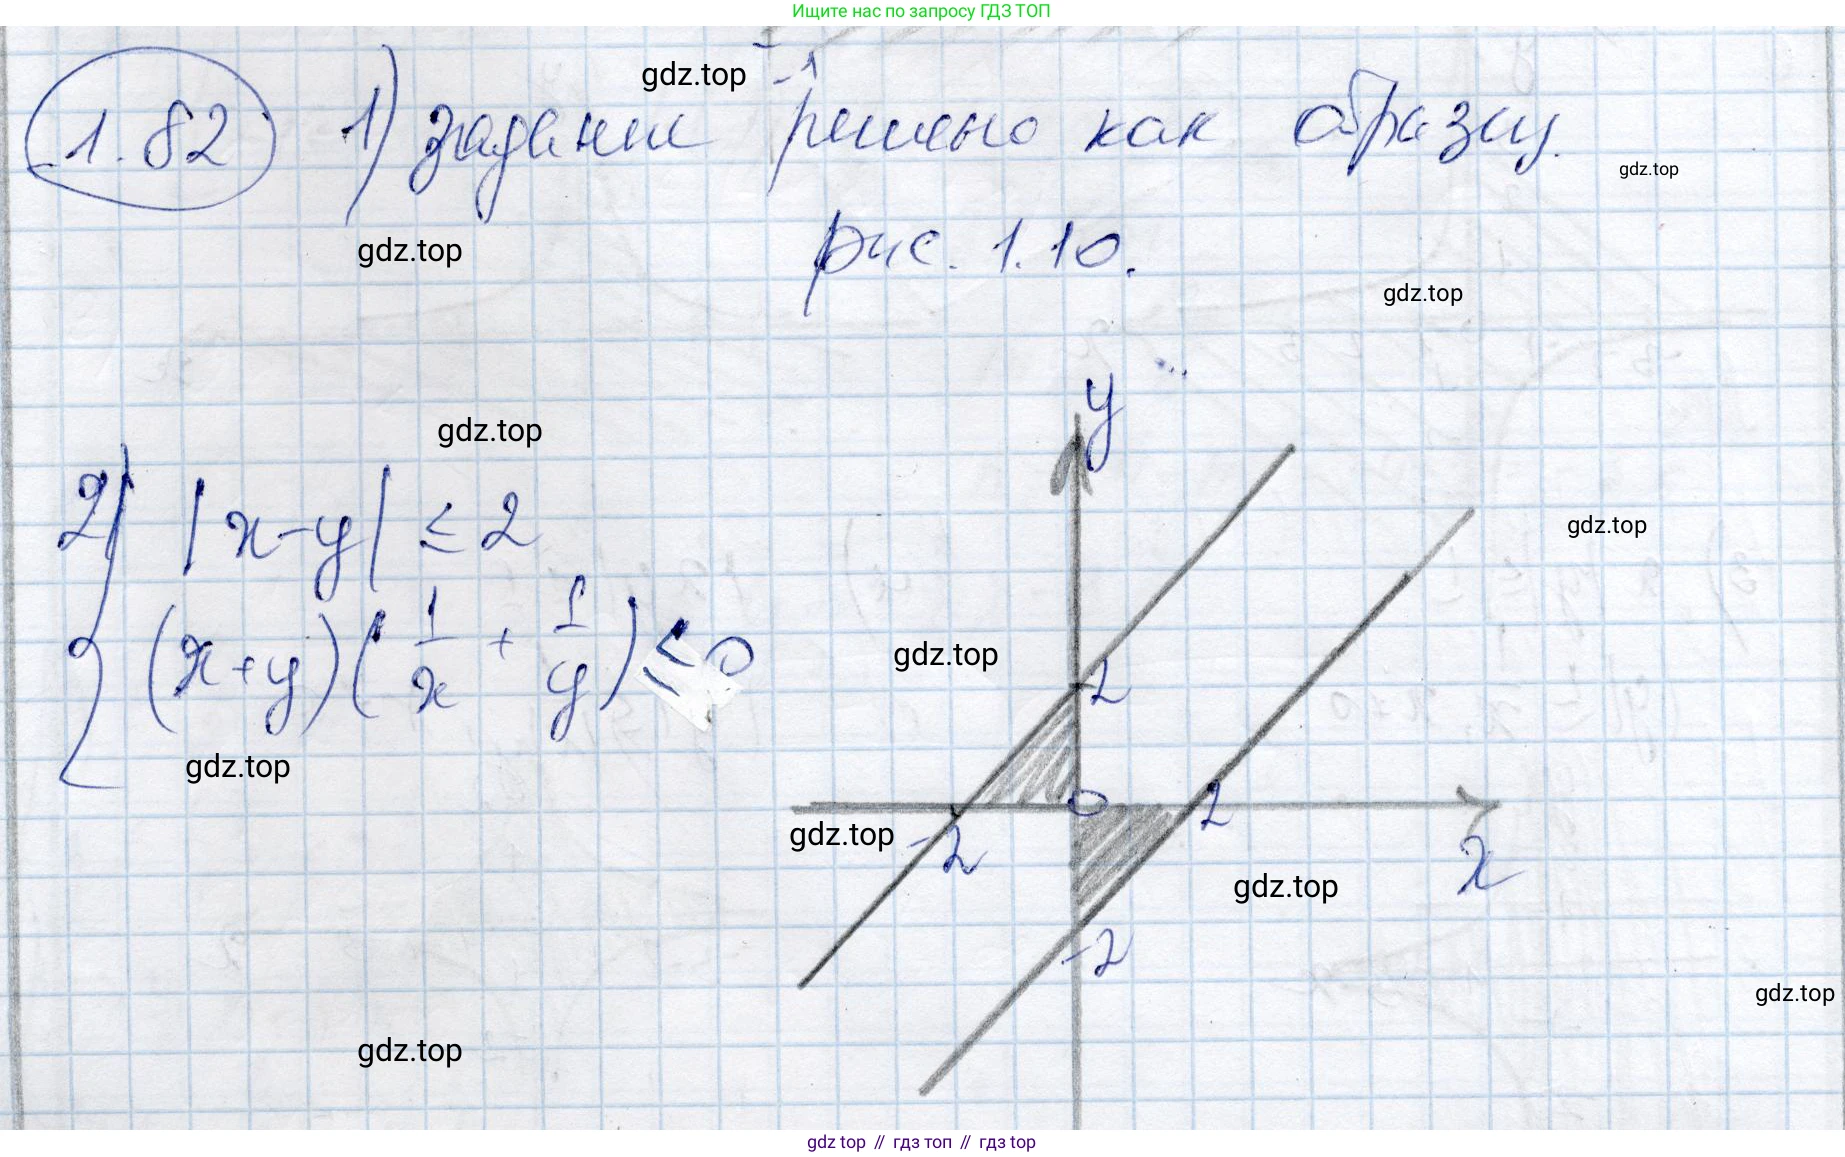 Ищите нас по запросу ГДЗ ТОП
1.82 1) задание решено как образец.
рис. 1.10.
gdz.top
gdz.top
gdz.top
gdz.top
gdz.top
2) |x-y| ≤ 2
(x+y)(1/x + 1/y) ≤ 0
y
2
0
2
-2
x
-2
gdz.top
gdz.top
gdz.top
gdz.top
gdz.top
gdz.top
gdz.top
gdz top // гдз топ // гдз top